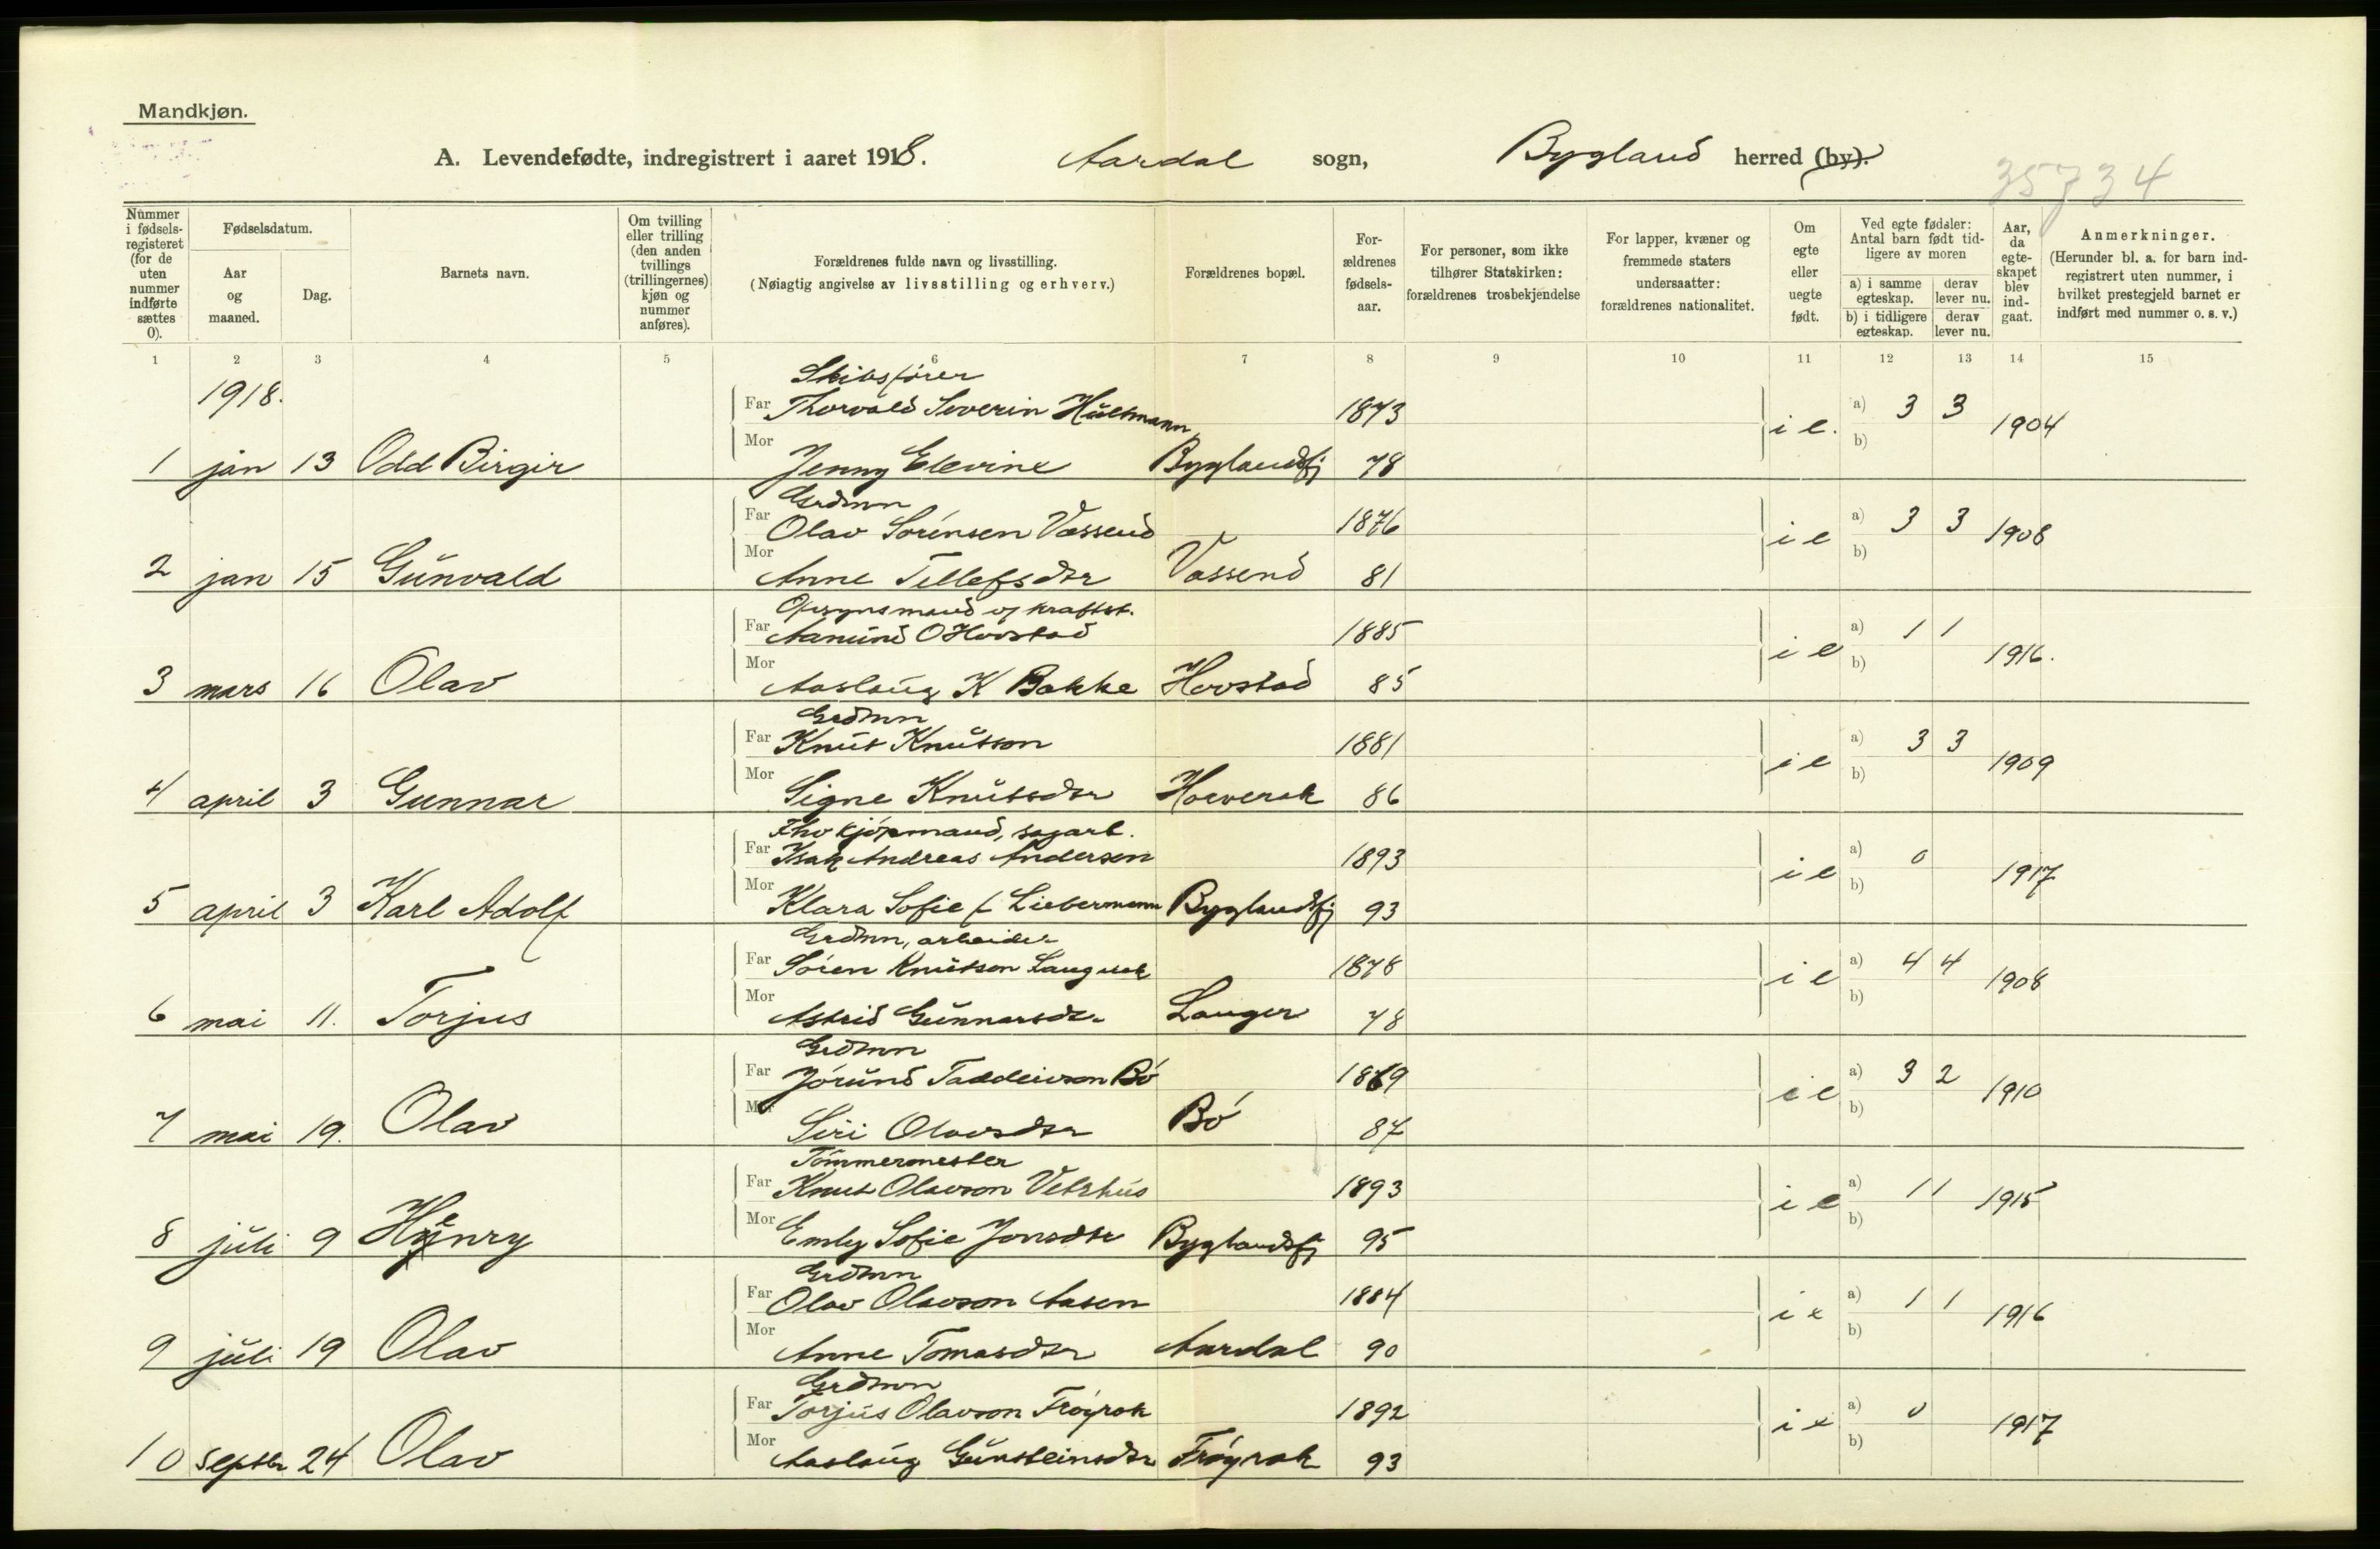 Mandkjøn.
A. Levendefødte, indregistrert i aaret 1918. Aardal sogn, Bygland herred (by).
35734
Nummer i fødselsregisteret (for de uten nummer indførte sættes 0).
Fødselsdatum.
Aar og maaned.
Dag.
Barnets navn.
Om tvilling eller trilling (den anden tvillings (trillingernes) kjøn og nummer anføres).
Forældrenes fulde navn og livsstilling.
(Nøiagtig angivelse av livsstilling og erhverv.)
Forældrenes bopæl.
Forældrenes fødselsaar.
For personer, som ikke tilhører Statskirken: forældrenes trosbekjendelse
For lapper, kvæner og fremmede staters undersaatter: forældrenes nationalitet.
Om egte eller uegte født.
Ved egte fødsler: Antal barn født tidligere av moren
a) i samme egteskap. derav lever nu.
b) i tidligere egteskap. derav lever nu.
Aar, da egteskapet blev indgaat.
Anmerkninger.
(Herunder bl. a. for barn indregistrert uten nummer, i hvilket prestegjeld barnet er indført med nummer o. s. v.)
1 2 3 4 5 6 7 8 9 10 11 12 13 14 15
1918.
Skibsfører
Far Thorvald Severin Hultmann 1873 a) 3 3
i e. 1904
Mor b)
1 jan 13 Odd Birgir Jenny Elevine Byglandsfj 78
Grdmn
Far Olav Sørensen Vassend 1876 a) 3 3
i e 1908
Mor b)
2 jan 15 Gunvald Anne Tellefsdtr Vassend 81
Opsynsmand v/ kraftst.
Far Aamund O Hovstad 1885 a) 1 1
i e 1916.
Mor b)
3 mars 16 Olav Aaslaug K Bakke Hovstad 85
Grdmn
Far Knut Knutson 1881 a) 3 3
i e 1909
Mor b)
4 april 3 Gunnar Signe Knutsdtr 86
kjøpmand, sagarb.
Far Isak Andreas Andersen 1893 a) 0
i e 1917
Mor b)
5 april 3 Karl Adolf Klara Sofie f Liebermann Byglandsfj 93
Grdmn, arbeider
Far Søren Knutson 1878 a) 4 4
i e 1908
Mor b)
6 mai 11. Torjus Astrid Gunnarsdtr 78
Grdmn
Far Jørund Taddeivson Bø 1869 a) 3 2
i e 1910
Mor b)
7 mai 19. Olav Siri Olavsdtr Bø 87
Tømmermester
Far Knut Olavson Vetrhus 1893 a) 1 1
i e 1915
Mor b)
8 juli 9 Henry Emly Sofie Jonsdtr Byglandsfj 95
Grdmn
Far Olav Olavson Aasen 1884 a) 1 1
i e 1916
Mor b)
9 juli 19 Olav Anne Tomasdtr Aardal 90
Grdmn
Far Torjus Olavson Frøyrak 1892 a) 0
i e 1917
Mor b)
10 septbr 24 Olav Aaslaug Gunsteinsdtr Frøyrak 93